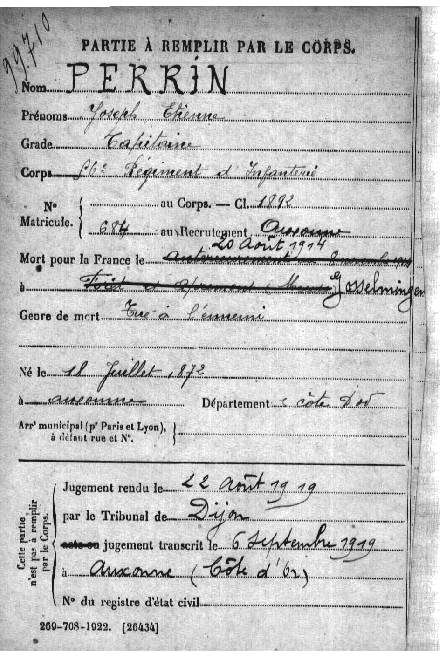 99710
PARTIE À REMPLIR PAR LE CORPS.
Nom PERRIN
Prénoms Joseph Etienne
Grade Capitaine
Corps 56e Régiment d'Infanterie
N° au Corps. — Cl. 1892
Matricule. 684 au Recrutement Auxonne
20 Août 1914
Mort pour la France le
à Gosselmingen
Genre de mort Tué à l'ennemi
Né le 18 Juillet 1872
à auxonne Département Côte d'or
Arrt municipal (pr Paris et Lyon),
à défaut rue et N°.
Cette partie
n'est pas à remplir
par le Corps.
Jugement rendu le 22 Août 1919
par le Tribunal de Dijon
acte ou jugement transcrit le 6 Septembre 1919
à Auxonne (Côte d'Or)
N° du registre d'état civil
269-708-1922. [26434]